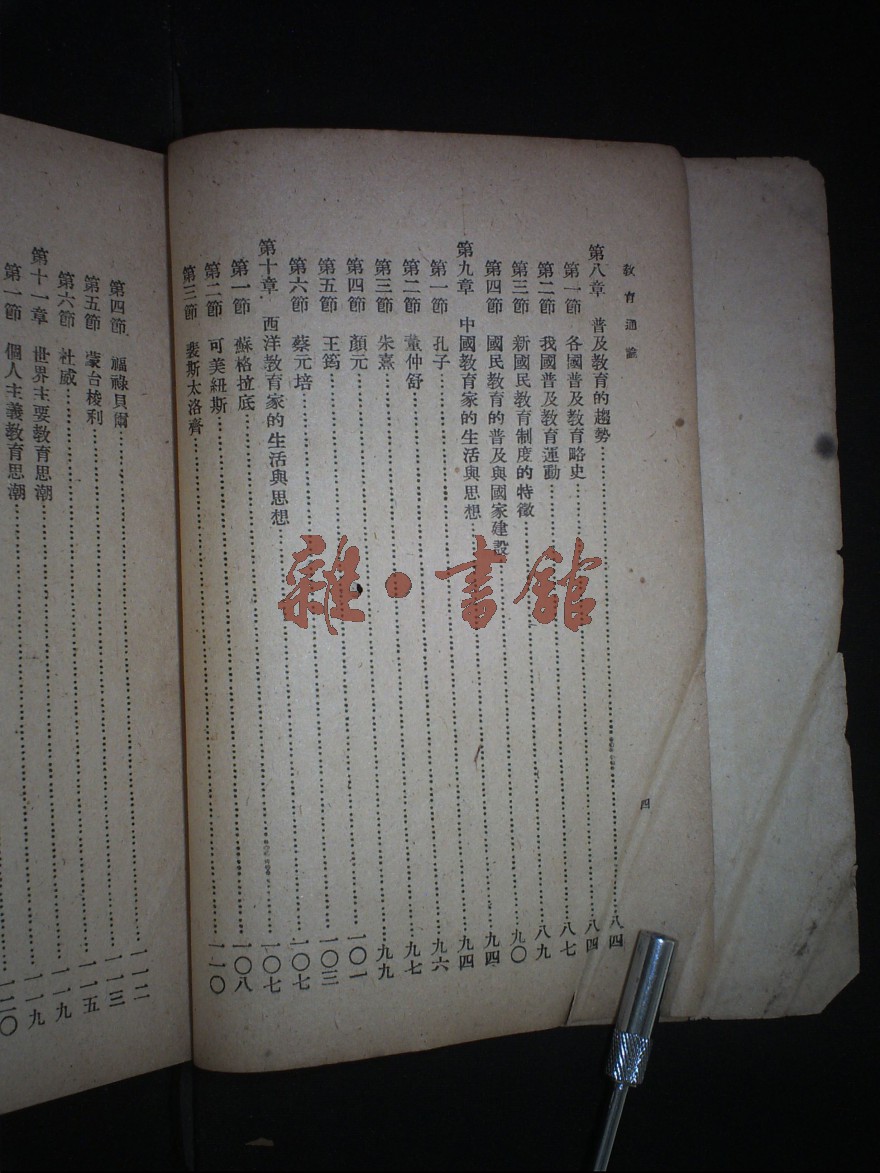 教育通論
四
第八章 普及教育的趨勢……八四
第一節 各國普及教育略史……八四
第二節 我國普及教育運動……八七
第三節 新國民教育制度的特徵……八九
第四節 國民教育的普及與國家建設……九〇
第九章 中國教育家的生活與思想……九四
第一節 孔子……九四
第二節 董仲舒……九六
第三節 朱熹……九七
第四節 顏元……九九
第五節 王筠……一〇一
第六節 蔡元培……一〇三
第十章 西洋教育家的生活與思想……一〇七
第一節 蘇格拉底……一〇七
第二節 可美紐斯……一〇八
第三節 裴斯太洛齊……一一〇
第四節 福祿貝爾……一一二
第五節 蒙台梭利……一一三
第六節 杜威……一一五
第十一章 世界主要教育思潮……一一九
第一節 個人主義教育思潮……一一九
一二〇
雜·書館